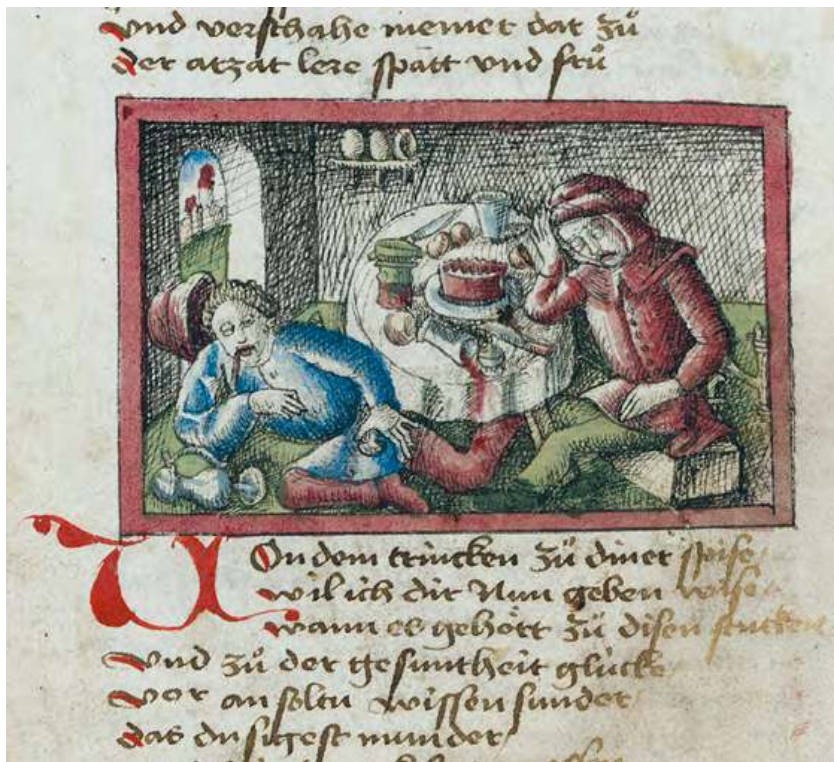 vnd verschahe niemet dat zů
der arzat lere spätt vnd frů
Von dem trincken zů diner spise
wil ich dir Nun geben wise
wann es gehört zů disen stucken
vnd zů der gesuntheit glücke
vor an soltu wissen sunder
das du sigest munder